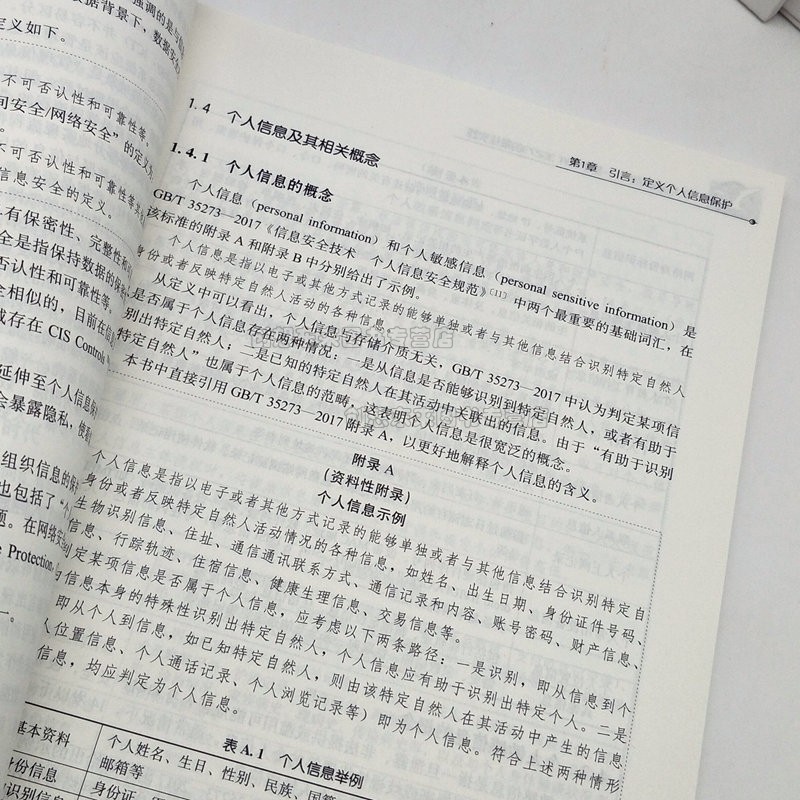 强调的是与
据背景下，数据安
定义如下。
不可否认性和可靠性等。
间安全/网络安全”的定义为
不可否认性和可靠性等
信息安全的定义。
有保密性、完整性和可
全是指保持数据的保
否认性和可靠性等。
全相似的，目前在信
或存在 CIS Controls
延伸至个人信息
会暴露隐私，使
组织信息的保
也包括了“个
题。在网络安
e Protection
第1章 引言：定义个人信息保护
1.4 个人信息及其相关概念
1.4.1 个人信息的概念
个人信息（personal information）和个人敏感信息（personal sensitive information）是
GB/T 35273—2017《信息安全技术 个人信息安全规范》[11]中两个最重要的基础词汇，在
该标准的附录 A 和附录 B 中分别给出了示例。
个人信息是指以电子或其他方式记录的能够单独或者与其他信息结合识别特定自然人
身份或者反映特定自然人活动的各种信息。
从定义中可以看出，个人信息与存储介质无关，GB/T 35273—2017 中认为判定某项信
是否属于个人信息存在两种情况：一是从信息是否能够识别到特定自然人，或者有助于
别出特定自然人；二是已知的特定自然人在其活动中关联出的信息。由于“有助于识别
特定自然人”也属于个人信息的范畴，这表明个人信息是很宽泛的概念。
本书中直接引用 GB/T 35273—2017 附录 A，以更好地解释个人信息的含义。
附录 A
（资料性附录）
个人信息示例
个人信息是指以电子或者其他方式记录的能够单独或者与其他信息结合识别特定自
身份或者反映特定自然人活动情况的各种信息，如姓名、出生日期、身份证件号码、
生物识别信息、住址、通信通讯联系方式、通信记录和内容、账号密码、财产信息、
信息、行踪轨迹、住宿信息、健康生理信息、交易信息等。
判定某项信息是否属于个人信息，应考虑以下两条路径：一是识别，即从信息到个
信息本身的特殊性识别出特定自然人，个人信息应有助于识别出特定个人。二是
即从个人到信息，如已知特定自然人，则由该特定自然人在其活动中产生的信息
人位置信息、个人通话记录、个人浏览记录等）即为个人信息。符合上述两种情形
信息，均应判定为个人信息。
表 A.1 个人信息举例
基本资料 个人姓名、生日、性别、民族、国籍
邮箱等
身份信息 身份证、
识别信息